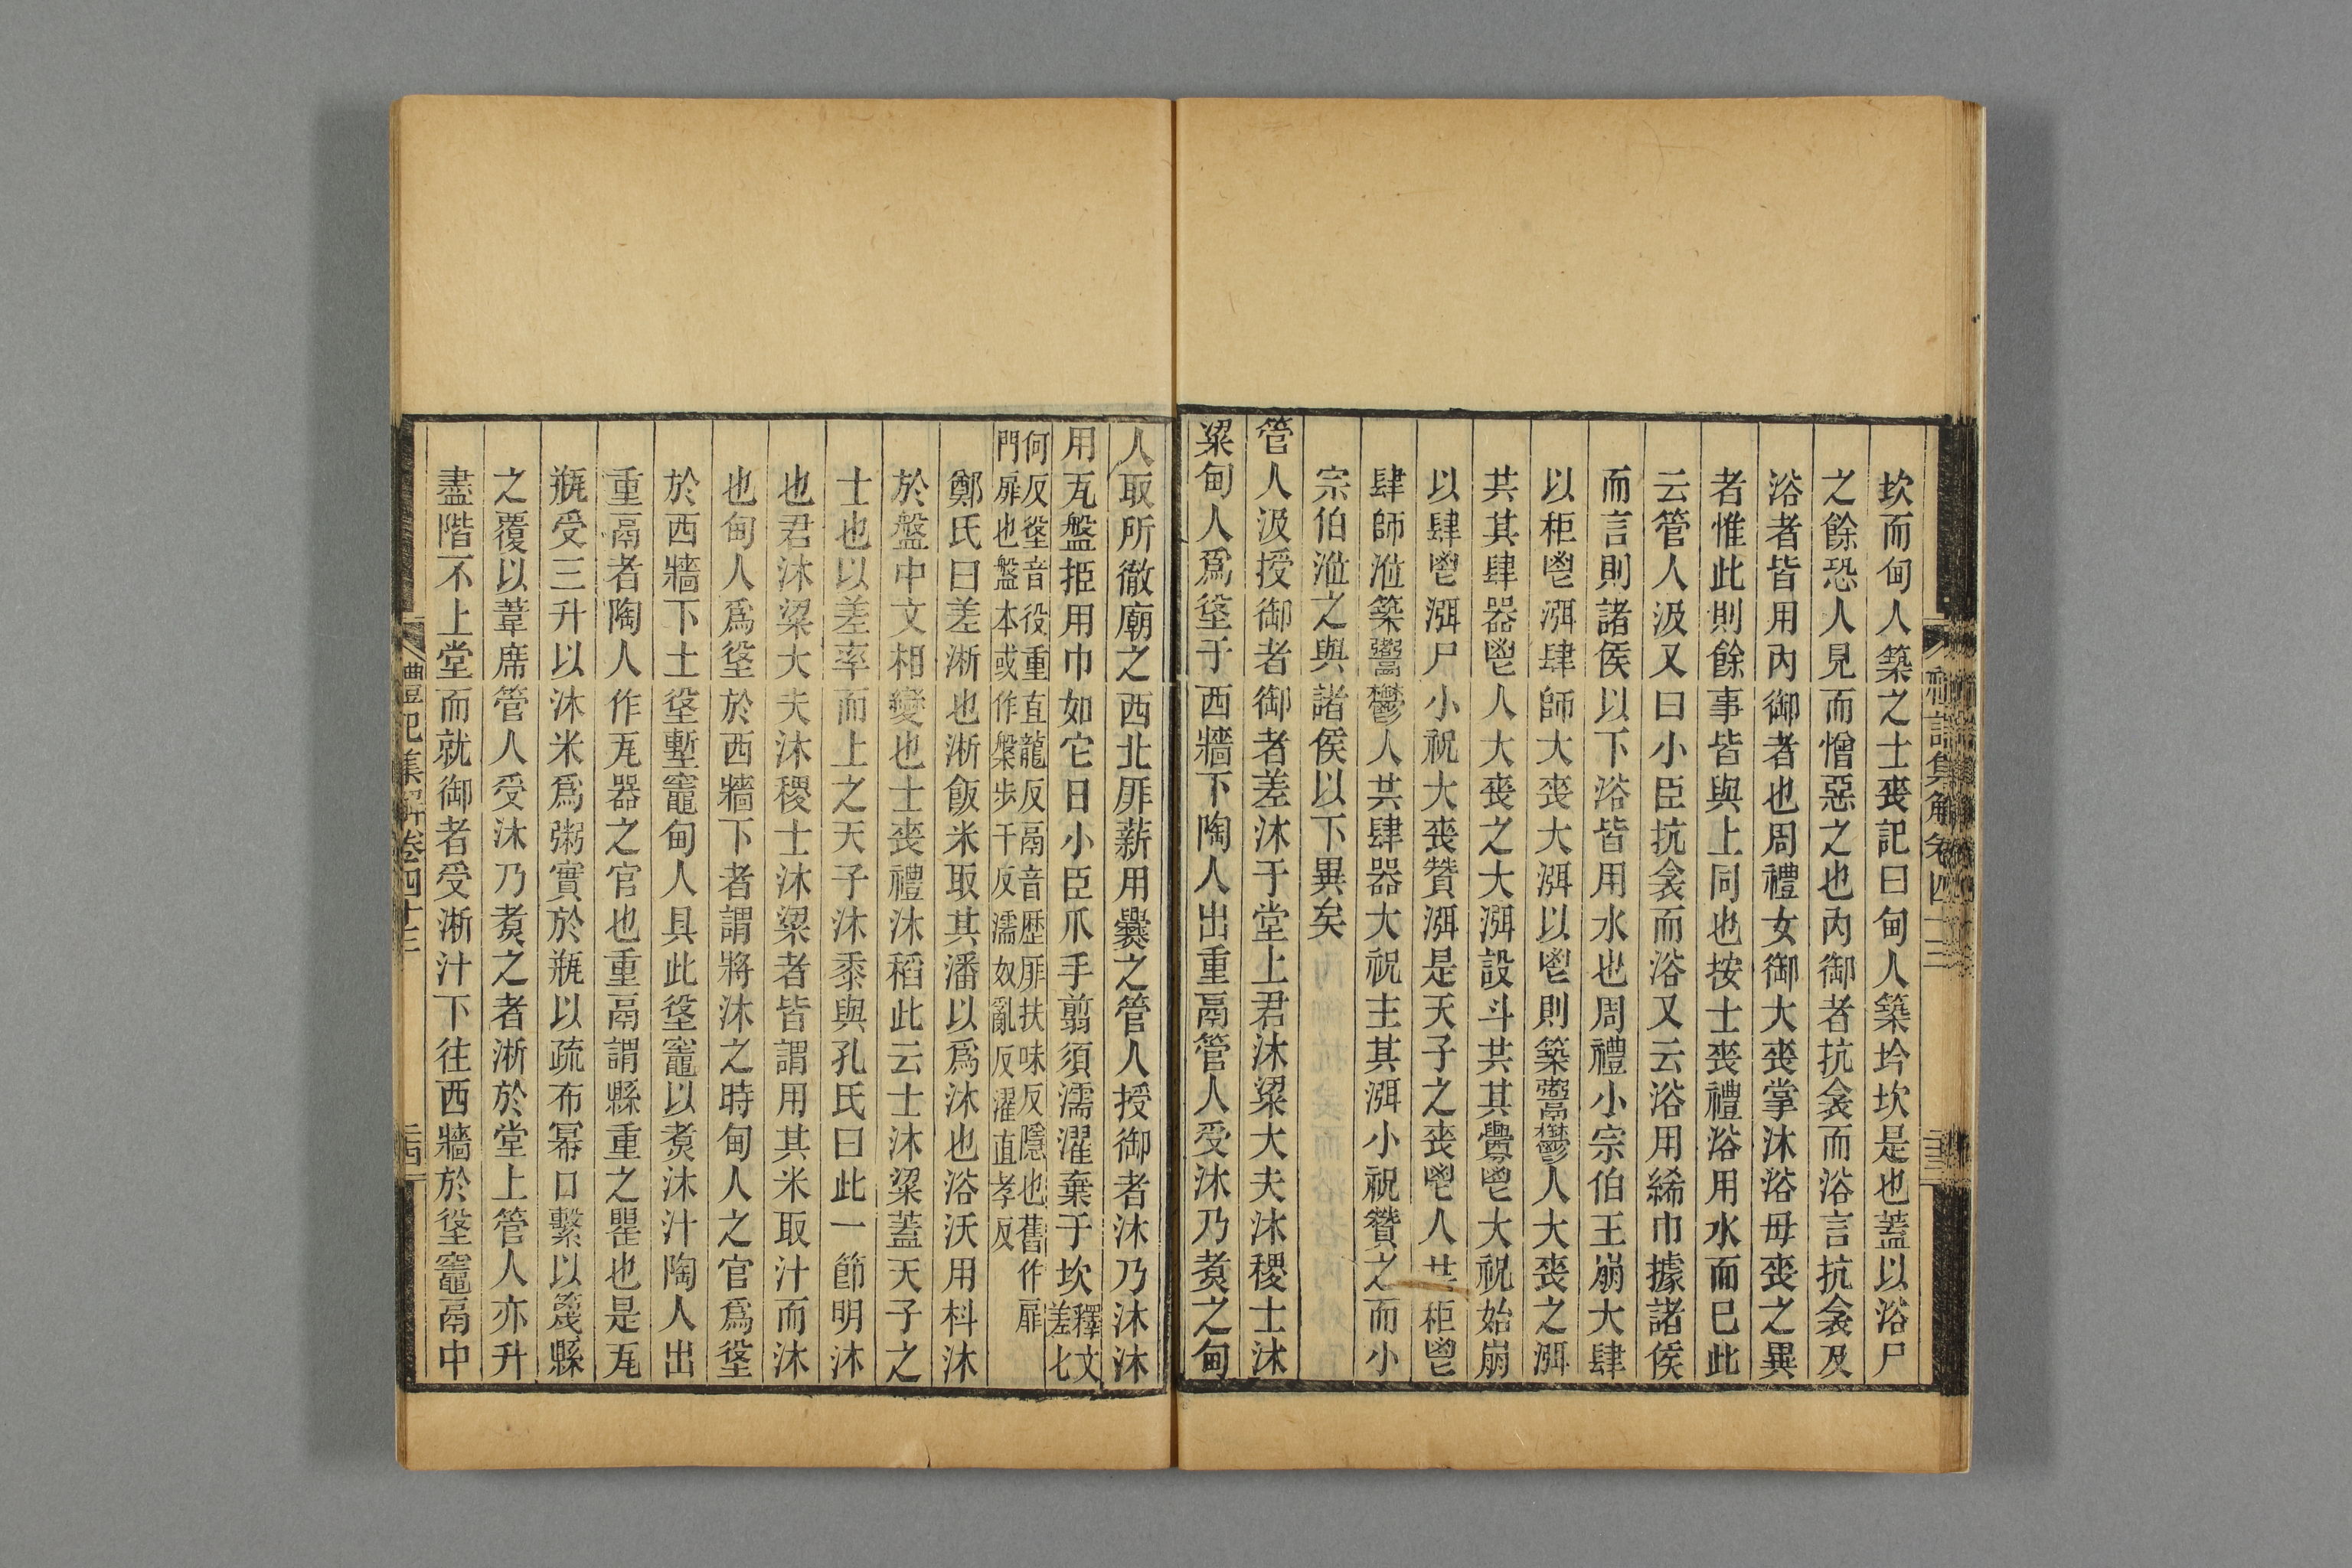 坎而甸人築之士喪記曰甸人築坅坎是也蓋以浴尸
之餘恐人見而憎惡之也內御者抗衾而浴言抗衾及
浴者皆用內御者也周禮女御大喪掌沐浴毋喪之異
者惟此則餘事皆與上同也按士喪禮浴用水而巳此
云管人汲又曰小臣抗衾而浴又云浴用絺巾據諸侯
而言則諸侯以下浴皆用水也周禮小宗伯王崩大肆
以秬鬯渳肆師大喪大渳以鬯則築鬻鬱人大喪之渳
共其肆器鬯人大喪之大渳設斗共其釁鬯大祝始崩
以肆鬯渳尸小祝大喪贊渳是天子之喪鬯人共秬鬯
肆師涖築鬻鬱人共肆器大祝主其渳小祝贊之而小
宗伯涖之與諸侯以下異矣
管人汲授御者御者差沐于堂上君沐粱大夫沐稷士沐
粱甸人爲垼于西牆下陶人出重鬲管人受沐乃煑之甸
人取所徹廟之西北厞薪用爨之管人授御者沐乃沐沐
用瓦盤挋用巾如它日小臣爪手翦須濡濯棄于坎釋文差七
何反垼音役重直龍反鬲音歷厞扶味反隱也舊作扉
門扉也盤本或作槃步干反濡奴亂反濯直孝反
鄭氏曰差淅也淅飯米取其潘以爲沐也浴沃用枓沐
於盤中文相變也士喪禮沐稻此云士沐粱蓋天子之
士也以差率而上之天子沐黍與孔氏曰此一節明沐
也君沐粱大夫沐稷士沐粱者皆謂用其米取汁而沐
也甸人爲垼於西牆下者謂將沐之時甸人之官爲垼
於西牆下土垼塹竈甸人具此垼竈以煑沐汁陶人出
重鬲者陶人作瓦器之官也重鬲謂縣重之罌也是瓦
瓶受三升以沐米爲粥實於瓶以疏布冪口繫以篾縣
之覆以葦席管人受沐乃煑之者淅於堂上管人亦升
盡階不上堂而就御者受淅汁下往西牆於垼竈鬲中
禮記集解卷四十三
二四